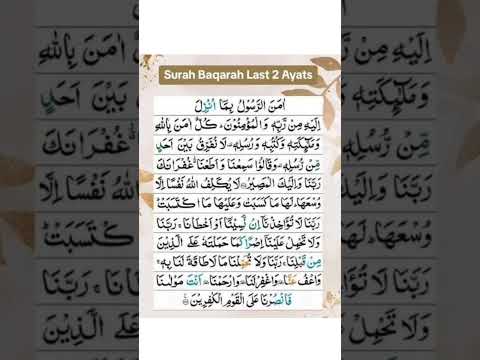 Surah Baqarah Last 2 Ayats
اٰمَنَ الرَّسُوْلُ بِمَاۤ اُنْزِلَ
اِلَيْهِ مِنْ رَّبِّهٖ وَالْمُؤْمِنُوْنَ ؕ كُلٌّ اٰمَنَ بِاللّٰهِ
وَمَلٰٓئِكَتِهٖ وَكُتُبِهٖ وَرُسُلِهٖ ۟ لَا نُفَرِّقُ بَيْنَ اَحَدٍ
مِّنْ رُّسُلِهٖ ۟ وَقَالُوْا سَمِعْنَا وَاَطَعْنَا غُفْرَانَكَ
رَبَّنَا وَاِلَيْكَ الْمَصِيْرُ ۝ لَا يُكَلِّفُ اللّٰهُ نَفْسًا اِلَّا
وُسْعَهَا ؕ لَهَا مَا كَسَبَتْ وَعَلَيْهَا مَا اكْتَسَبَتْ ؕ
رَبَّنَا لَا تُؤَاخِذْنَاۤ اِنْ نَّسِيْنَاۤ اَوْ اَخْطَاْنَا ۚ رَبَّنَا
وَلَا تَحْمِلْ عَلَيْنَاۤ اِصْرًا كَمَا حَمَلْتَهٗ عَلَى الَّذِيْنَ
مِنْ قَبْلِنَا ۚ رَبَّنَا وَلَا تُحَمِّلْنَا مَا لَا طَاقَةَ لَنَا بِهٖ ۚ
وَاعْفُ عَنَّا وَاغْفِرْ لَنَا وَارْحَمْنَا اَنْتَ مَوْلٰىنَا
فَانْصُرْنَا عَلَى الْقَوْمِ الْكٰفِرِيْنَ ۝